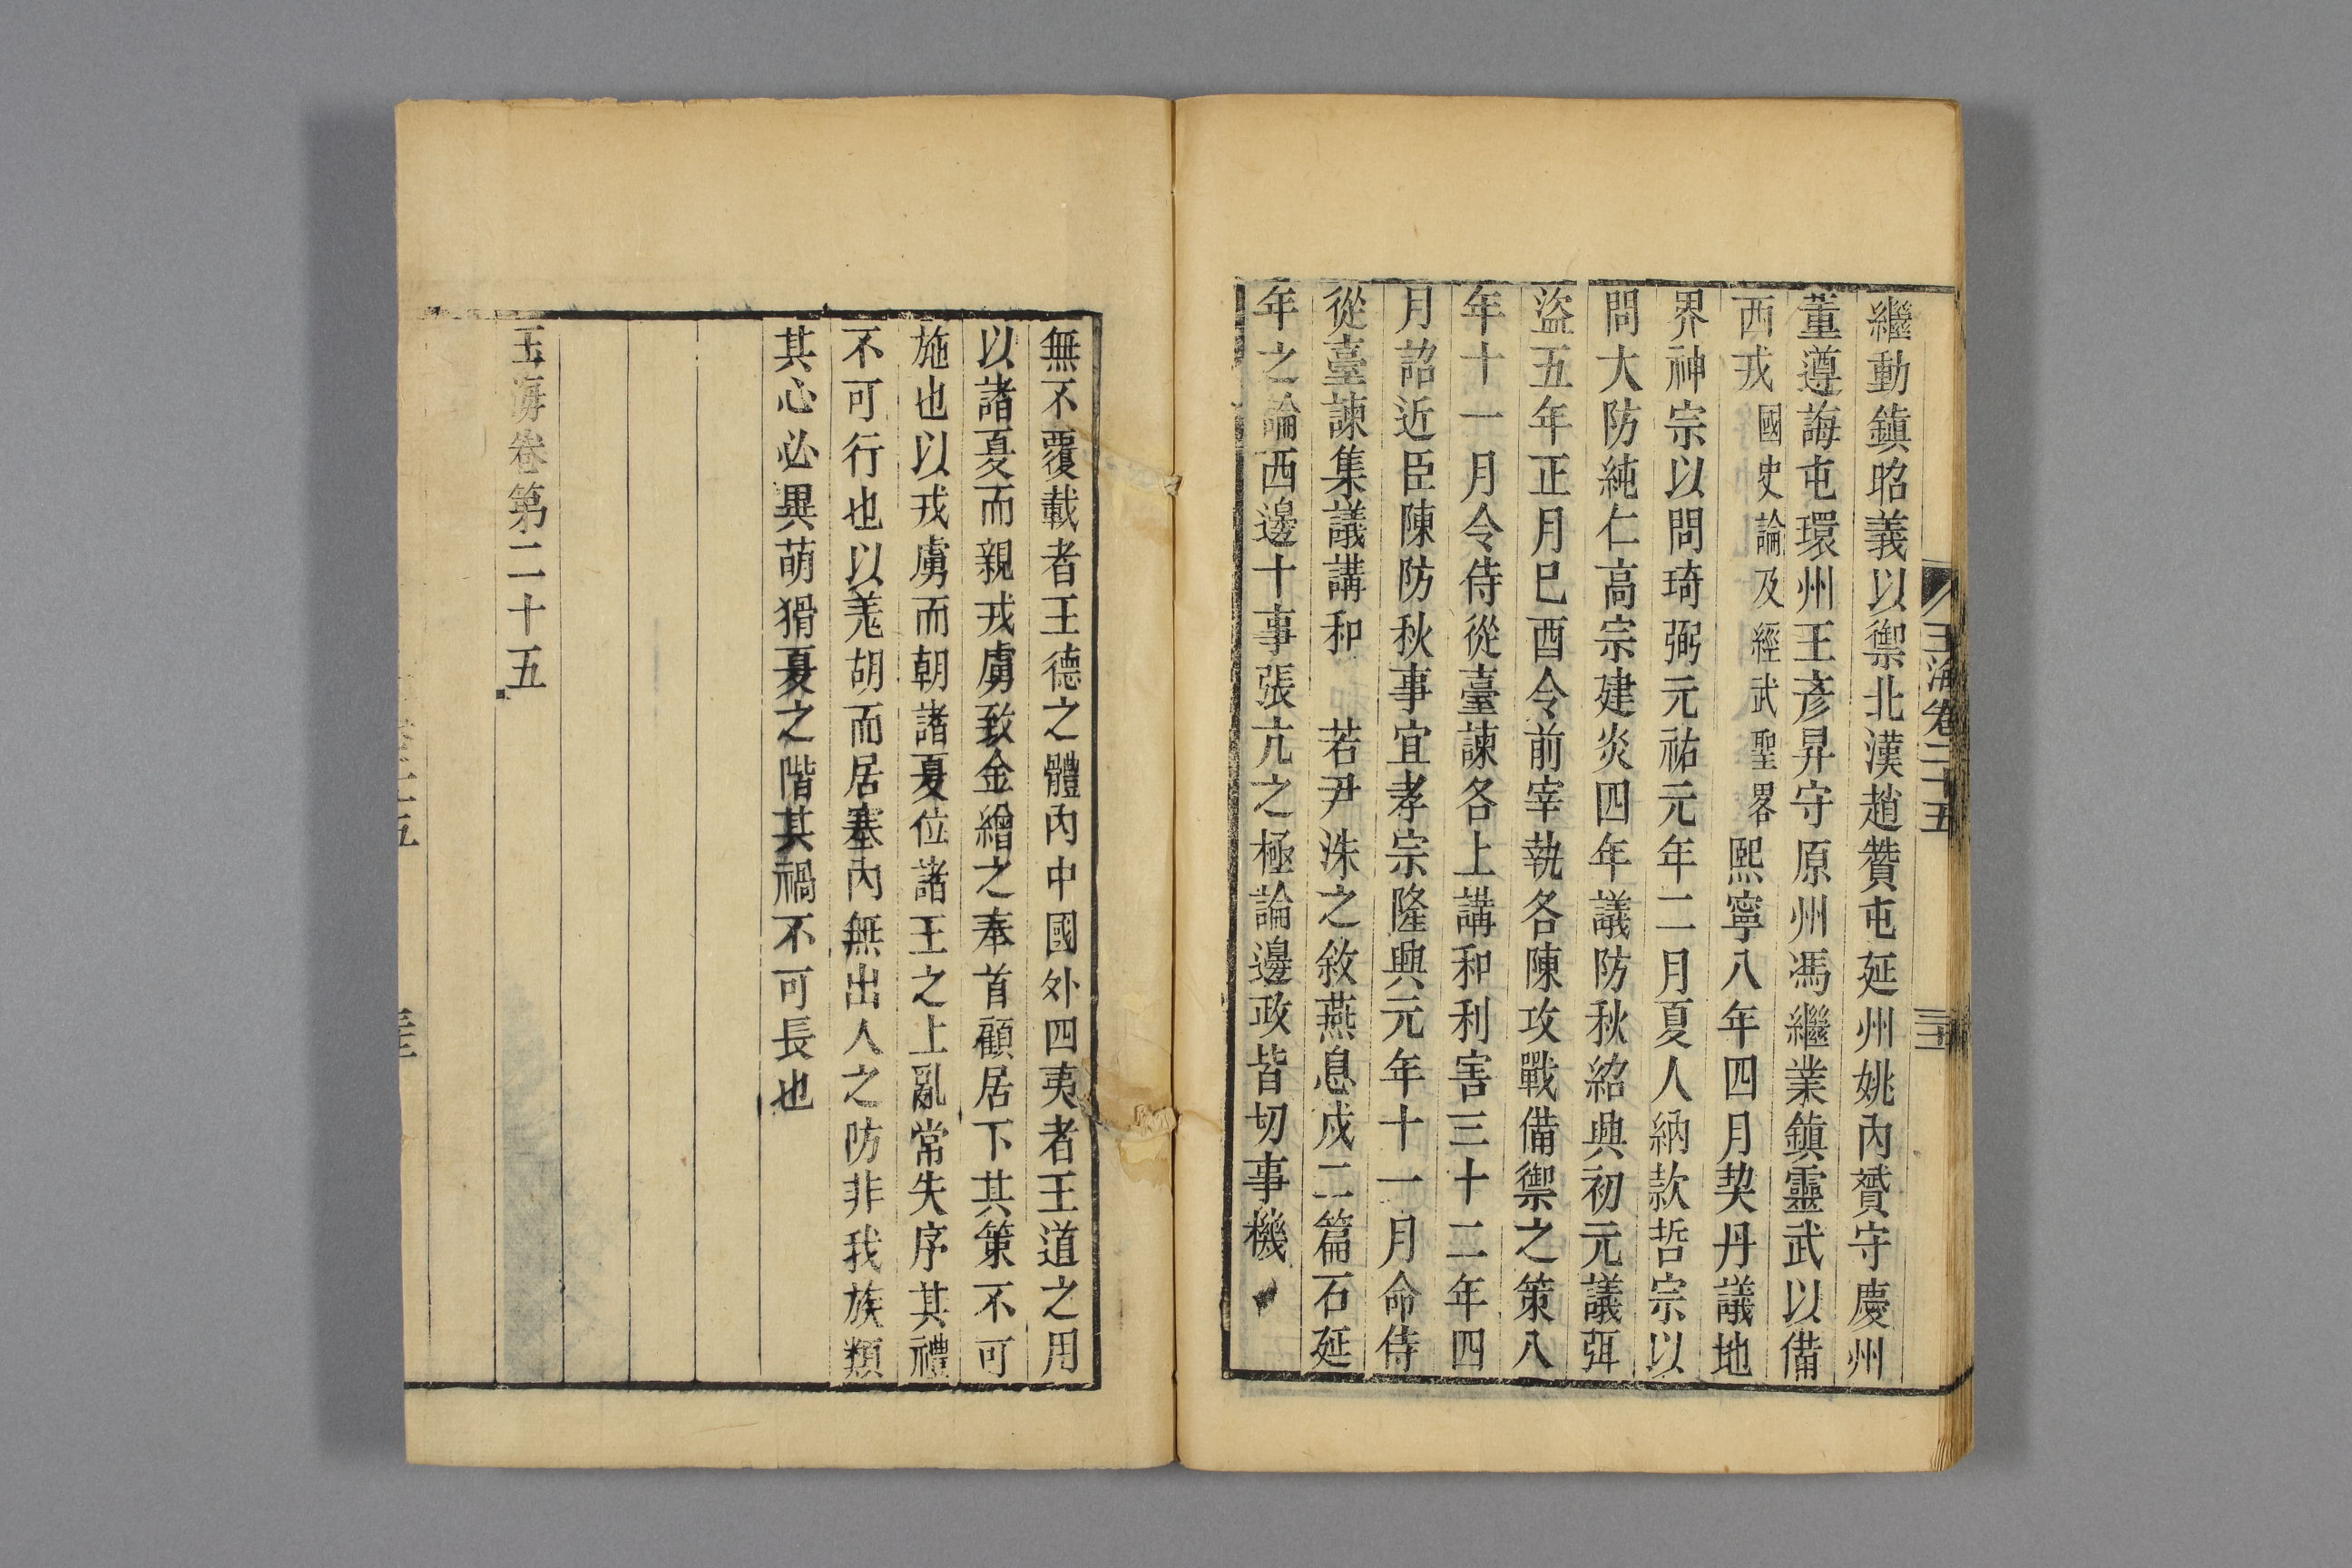 繼勳鎮昭義以禦北漢趙贊屯延州姚內贇守慶州
董遵誨屯環州王彥昇守原州馮繼業鎮靈武以備
西戎國史論及經武聖畧熙寧八年四月契丹議地
界神宗以問琦弼元祐元年二月夏人納款哲宗以
問大防純仁高宗建炎四年議防秋紹興初元議弭
盜五年正月巳酉令前宰執各陳攻戰備禦之策八
年十一月令侍從臺諫各上講和利害三十二年四
月詔近臣陳防秋事宜孝宗隆興元年十一月命侍
從臺諫集議講和 若尹洙之敘燕息戍二篇石延
年之論西邊十事張亢之極論邊政皆切事機
玉海卷二十五
無不覆載者王德之體內中國外四夷者王道之用
以諸夏而親戎虜致金繒之奉首顧居下其策不可
施也以戎虜而朝諸夏位諸王之上亂常失序其禮
不可行也以羌胡而居塞內無出入之防非我族類
其心必異萌猾夏之階其禍不可長也
玉海卷第二十五